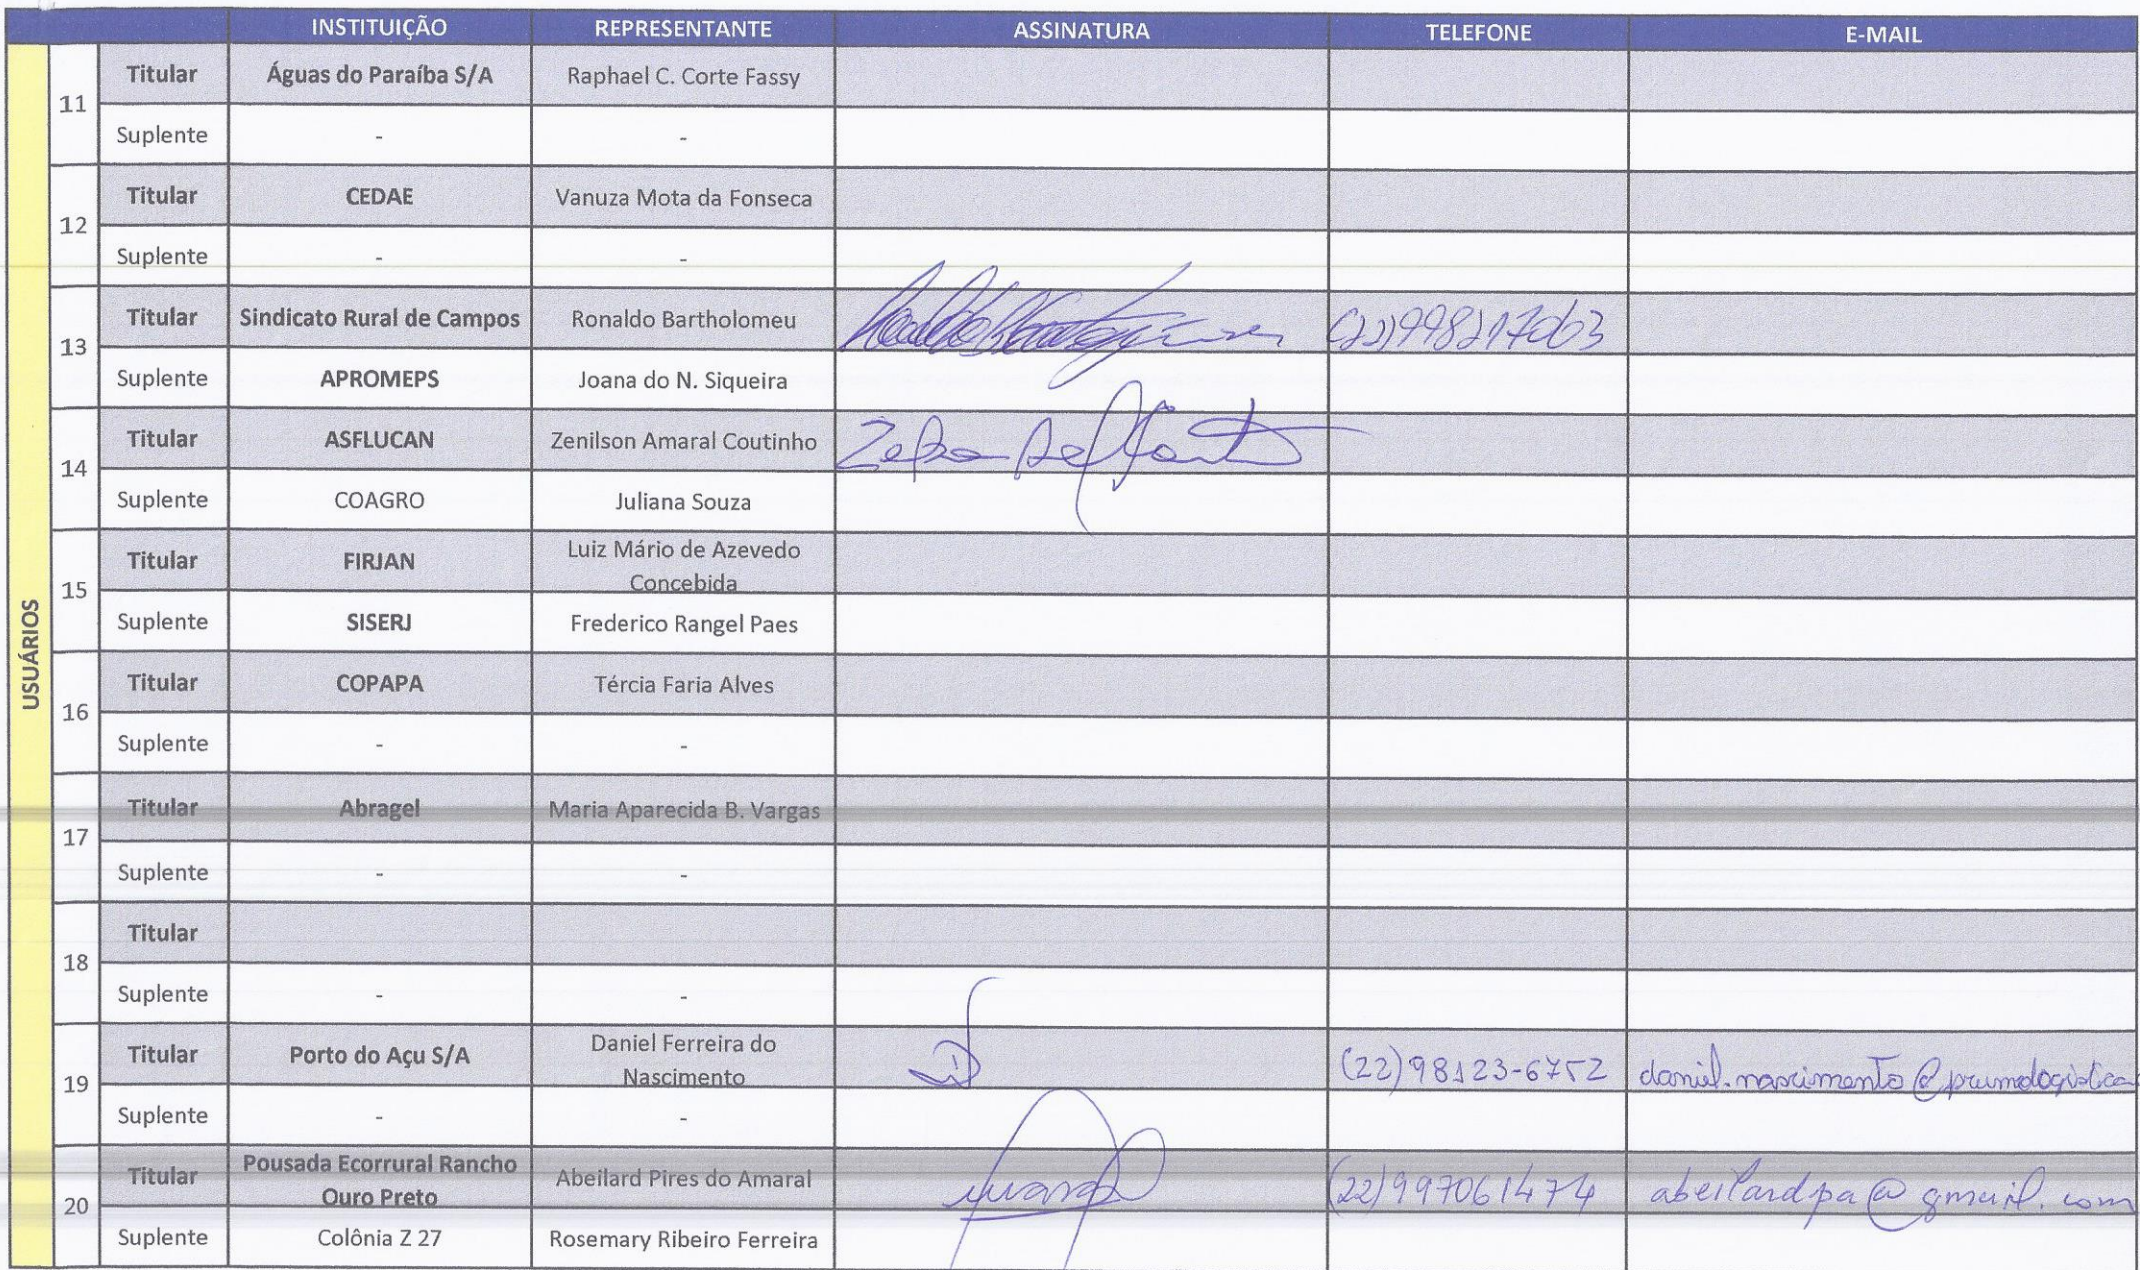 INSTITUIÇÃO REPRESENTANTE ASSINATURA TELEFONE E-MAIL
USUÁRIOS
11
Titular Águas do Paraíba S/A Raphael C. Corte Fassy
Suplente - -
12
Titular CEDAE Vanuza Mota da Fonseca
Suplente - -
13
Titular Sindicato Rural de Campos Ronaldo Bartholomeu (22)998217063
Suplente APROMEPS Joana do N. Siqueira
14
Titular ASFLUCAN Zenilson Amaral Coutinho
Suplente COAGRO Juliana Souza
15
Titular FIRJAN Luiz Mário de Azevedo
Concebida
Suplente SISERJ Frederico Rangel Paes
16
Titular COPAPA Tércia Faria Alves
Suplente - -
17
Titular Abragel Maria Aparecida B. Vargas
Suplente - -
18
Titular
Suplente - -
19
Titular Porto do Açu S/A Daniel Ferreira do
Nascimento (22)98123-6752 daniel.nascimento@prumologistica
Suplente - -
20
Titular Pousada Ecorrural Rancho
Ouro Preto Abeilard Pires do Amaral (22)997061474 abeilardpa@gmail.com
Suplente Colônia Z 27 Rosemary Ribeiro Ferreira